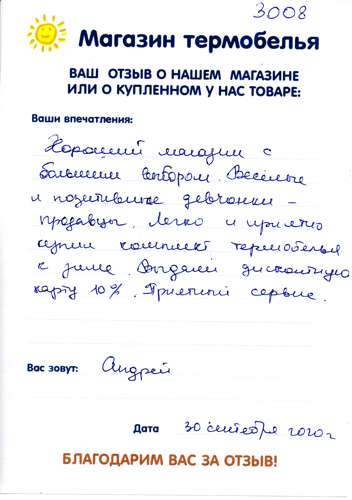 3008
Магазин термобелья
ВАШ ОТЗЫВ О НАШЕМ МАГАЗИНЕ
ИЛИ О КУПЛЕННОМ У НАС ТОВАРЕ:
Ваши впечатления:
Хороший магазин с
большим выбором. Веселые
и позитивные девчонки -
продавцы. Легко и приятно
купили комплект термобелья
к зиме. Выдали дисконтную
карту 10%. Приятный сервис.
Вас зовут: Андрей
Дата 30 сентября 2020г
БЛАГОДАРИМ ВАС ЗА ОТЗЫВ!